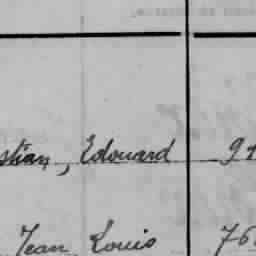 stian, Edouard 91
Jean Louis 76